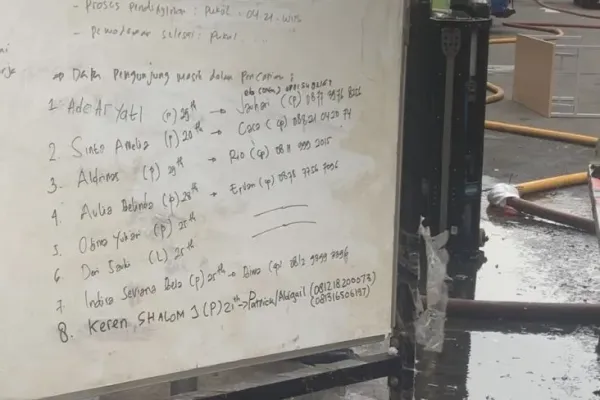 - Proses pendinginan : pukul . 04.21 . WIB
- pemadaman selesai : pukul
⇒ Data Pengunjung masih dalam Pencarian :
1 Ade Aryati (P) 29th → (cp) 0877
2 Sinta Amelia (P) 20th → Caca (cp) 08821 0420 74
3. Aldrinas (P) 29th → Rio (cp) 0811 999 2015
4 Aulia Belinda (P) 28th → Ervan (cp) 0878 7756 7096
5. Oshima Yukari (P) 25th
6 (L) 25th
7 Indira Seviana Bela (P) 25th → (cp) 0812 9799
8. Keren SHALOM J (P) 21th → Patricia/Abigail (081218200073)
(081316506197)